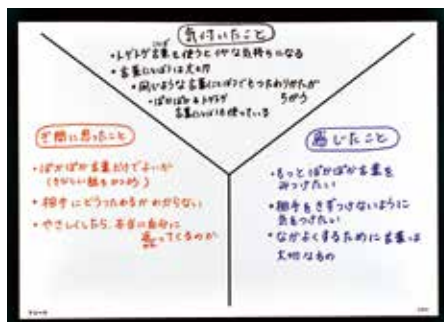 気付いたこと
・トゲトゲ言葉を使うとイヤな気持ちになる
・言葉にいは大切
・同じような言葉によってもつたわりかたが
ちがう
・ぽかぽか トゲトゲ
言葉 を使っている
ぎ問に思ったこと
・ぽかぽか言葉だけでよいか
(きびしい も )
・相手にどうつたわるかわからない
・やさしくしたら、本当に自分に
返ってくるのか
感じたこと
・もっとぽかぽか言葉を
みつけたい
・相手をきずつけないように
気をつけたい
・なかよくするために言葉は
大切なもの